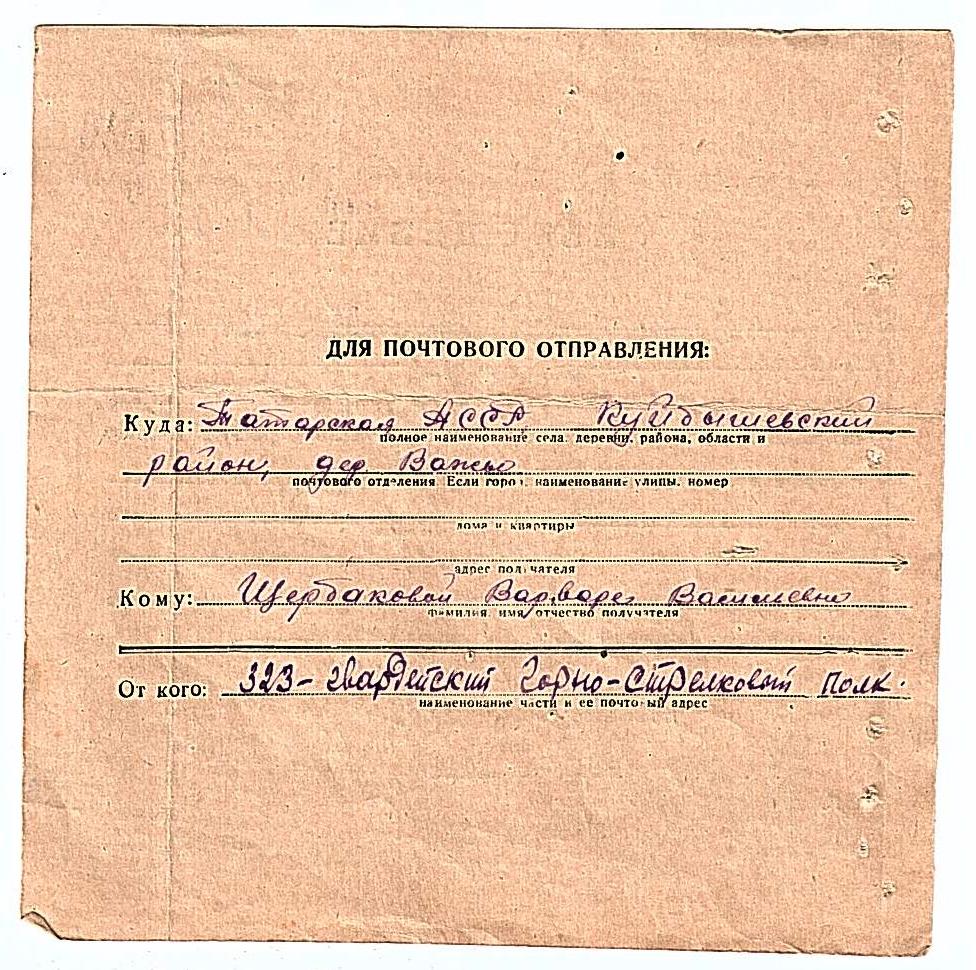 ДЛЯ ПОЧТОВОГО ОТПРАВЛЕНИЯ:
Куда: Татарская АССР Куйбышевский
полное наименование села, деревни, района, области и
район, дер
почтового отделения. Если город, наименование улицы, номер
дома и квартиры
адрес получателя
Кому: Щербаковой Варваре Васильевне
фамилия, имя, отчество получателя
От кого: 323-гвардейский Горно-Стрелковый полк.
наименование части и ее почтовый адрес